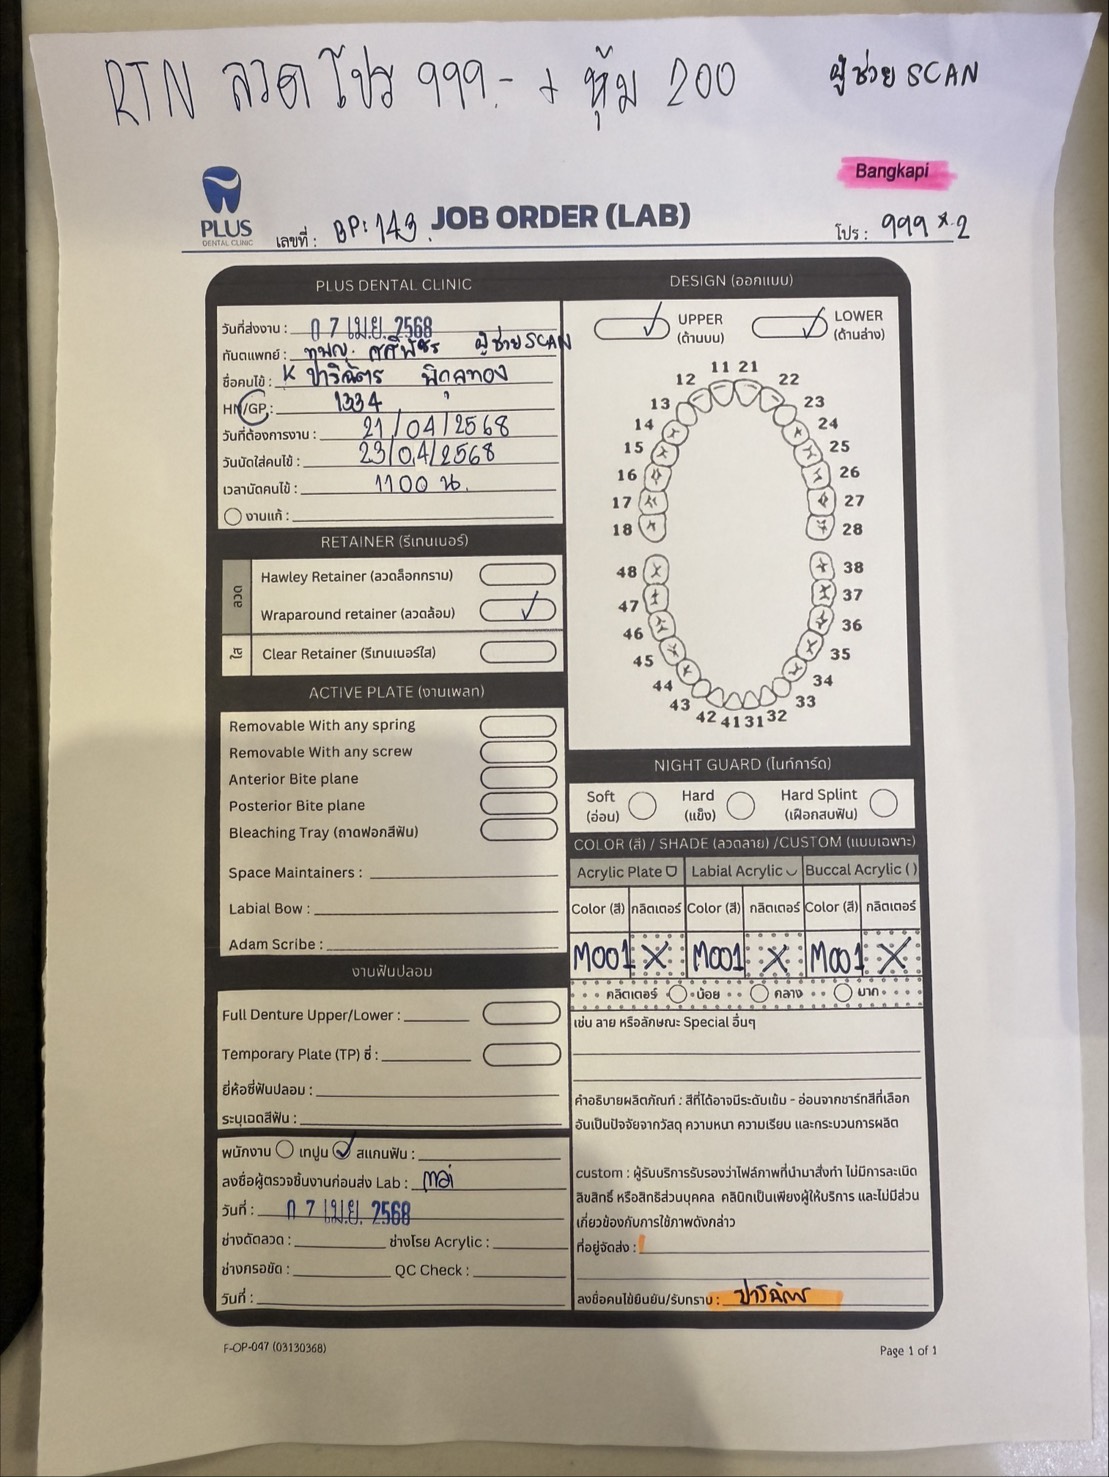 RTN ลวด โปร 999.- + หุ้ม 200 ผู้ช่วย SCAN
Bangkapi
PLUS
DENTAL CLINIC
เลขที่ : BP: 143 JOB ORDER (LAB) โปร : 999 x 2
PLUS DENTAL CLINIC
วันที่ส่งงาน : 07 เม.ย. 2568
ทันตแพทย์ : ทพญ. ศศิพัชร ผู้ช่วย SCAN
ชื่อคนไข้ : K ปาริฉัตร พิกุลทอง
HN/GP : 1334
วันที่ต้องการงาน : 21/04/2568
วันนัดใส่คนไข้ : 23/04/2568
เวลานัดคนไข้ : 1100 น.
งานแก้ :
RETAINER (รีเทนเนอร์)
ลวด
Hawley Retainer (ลวดล็อกกราม)
Wraparound retainer (ลวดล้อม) ✓
ใส
Clear Retainer (รีเทนเนอร์ใส)
ACTIVE PLATE (งานเพลท)
Removable With any spring
Removable With any screw
Anterior Bite plane
Posterior Bite plane
Bleaching Tray (ถาดฟอกสีฟัน)
Space Maintainers :
Labial Bow :
Adam Scribe :
งานฟันปลอม
Full Denture Upper/Lower :
Temporary Plate (TP) ซี่ :
ยี่ห้อซี่ฟันปลอม :
ระบุเฉดสีฟัน :
พนักงาน เทปูน ✓ สแกนฟัน :
ลงชื่อผู้ตรวจชิ้นงานก่อนส่ง Lab : mai
วันที่ : 07 เม.ย. 2568
ช่างดัดลวด : ช่างโรย Acrylic :
ช่างกรอขัด : QC Check :
วันที่ :
DESIGN (ออกแบบ)
✓ UPPER ✓ LOWER
(ด้านบน) (ด้านล่าง)
11 21
12 22
13 23
14 24
15 25
16 26
17 27
18 28
48 38
47 37
46 36
45 35
44 34
43 33
42 41 31 32
NIGHT GUARD (ไนท์การ์ด)
Soft Hard Hard Splint
(อ่อน) (แข็ง) (เฝือกสบฟัน)
COLOR (สี) / SHADE (ลวดลาย) /CUSTOM (แบบเฉพาะ)
Acrylic Plate Labial Acrylic Buccal Acrylic ( )
Color (สี) กลิตเตอร์ Color (สี) กลิตเตอร์ Color (สี) กลิตเตอร์
M001 X M001 X M001 X
กลิตเตอร์ น้อย กลาง มาก
เช่น ลาย หรือลักษณะ Special อื่นๆ
คำอธิบายผลิตภัณฑ์ : สีที่ได้อาจมีระดับเข้ม - อ่อนจากชาร์ทสีที่เลือก
อันเป็นปัจจัยจากวัสดุ ความหนา ความเรียบ และกระบวนการผลิต
custom : ผู้รับบริการรับรองว่าไฟล์ภาพที่นำมาสั่งทำ ไม่มีการละเมิด
ลิขสิทธิ์ หรือสิทธิส่วนบุคคล คลินิกเป็นเพียงผู้ให้บริการ และไม่มีส่วน
เกี่ยวข้องกับการใช้ภาพดังกล่าว
ที่อยู่จัดส่ง :
ลงชื่อคนไข้ยืนยัน/รับทราบ : ปาริฉัตร
F-OP-047 (03130368) Page 1 of 1